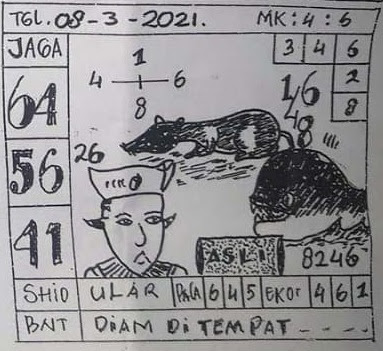 TGL. 08-3-2021. MK: 4 : 6
JAGA
3 4 6
2
8
1
4 6
8
64
1/6
48
56
26
41
ASLI
8246
SHIO ULAR PALA 6 4 5 EKOR 4 6 1
BNT DIAM DI TEMPAT - - - -